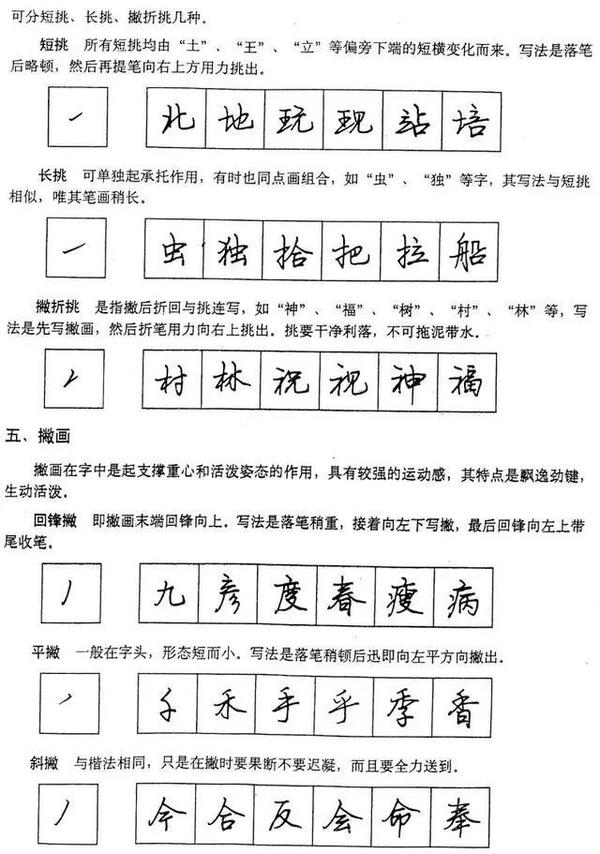 可分短挑、长挑、撇折挑几种。
短挑　所有短挑均由“土”、“王”、“立”等偏旁下端的短横变化而来。写法是落笔
后略顿，然后再提笔向右上方用力挑出。
北地玩现站培
长挑　可单独起承托作用，有时也同点画组合，如“虫”、“独”等字，其写法与短挑
相似，唯其笔画稍长。
虫独拾把拉船
撇折挑　是指撇后折回与挑连写，如“神”、“福”、“树”、“村”、“林”等，写
法是先写撇画，然后折笔用力向右上挑出。挑要干净利落，不可拖泥带水。
村林祝视神福
五、撇画
撇画在字中是起支撑重心和活泼姿态的作用，具有较强的运动感，其特点是飘逸劲键，
生动活泼。
回锋撇　即撇画末端回锋向上。写法是落笔稍重，接着向左下写撇，最后回锋向左上带
尾收笔。
九彦度春瘦病
平撇　一般在字头，形态短而小。写法是落笔稍顿后迅即向左平方向撇出。
千禾手乎季香
斜撇　与楷法相同，只是在撇时要果断不要迟凝，而且要全力送到。
今合反会命奉